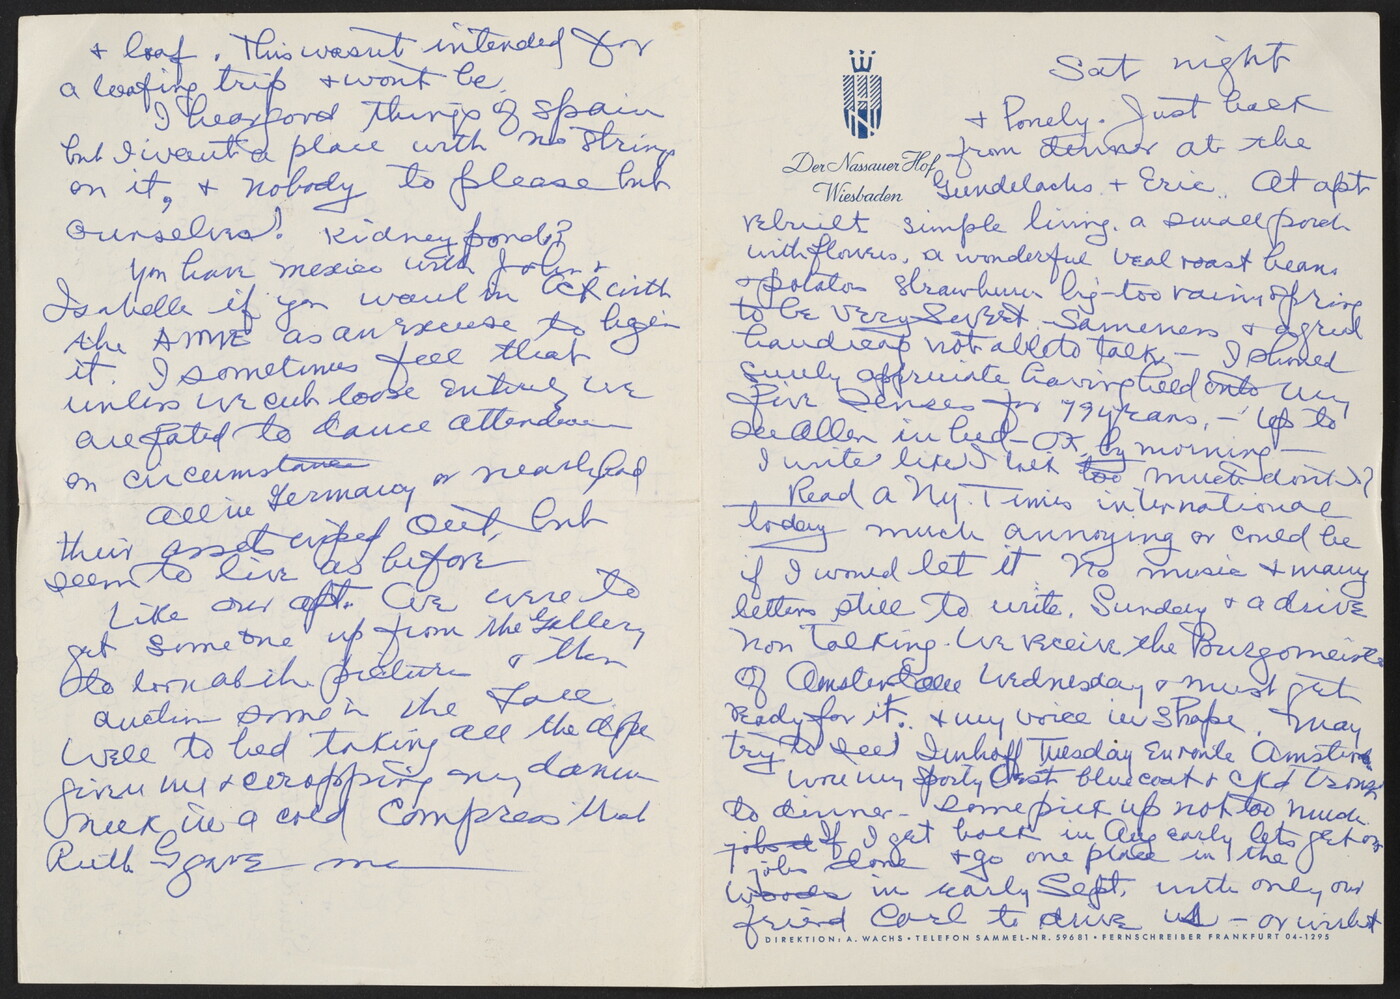 Sat night
& lonely. Just back
Der Nassauer Hof
Wiesbaden
from dinner at the
Gundelachs & Eric. At apt
rebuilt simple living. a small porch
with flowers. a wonderful veal roast beans
& potatoes strawberries big - too rainy spring
to be very sweet. Sameness & a great
handicap not able to talk — I should
surely appreciate having held onto my
five senses for 79 years, — Up to
see Allen in bed - OK by morning —
I write like I talk too much don't I?
Read a N.Y. Times international
today much annoying or could be
if I would let it. No music & many
letters still to write. Sunday & a drive
non talking. We receive the Burgomeister
of Amsterdam Wednesday & must get
ready for it. & my voice in shape. & may
try to see Imhoff Tuesday enroute
wore my sporty blue coat & ckd
to dinner - some pick up not too much
jobs d If I get back in Aug early lets get our
jobs done & go one place in the
woods in early Sept. with only our
friend Carl to drive us — or
DIREKTION: A. WACHS • TELEFON SAMMEL-NR. 59681 • FERNSCHREIBER FRANKFURT 04-1295
& loaf. This wasn't intended for
a loafing trip & wont be.
I hear good things of Spain
but I want a place with no strings
on it, & nobody to please but
ourselves! Kidney pond?
You have Mexico with John &
Isabelle if you want in Oct with
the AIME as an excuse to begin
it. I sometimes feel that
unless we cut loose entirely we
are fated to dance attendance
on circumstance
All in Germany or nearly had
their assets wiped out, but
seem to live as before
Like our apt. We were to
get someone up from the Gallery
to look at the picture & then
auction some in the fall.
Well to bed taking all the dope
given me & wrapping my damn
neck in a cold compress that
Ruth G gave me